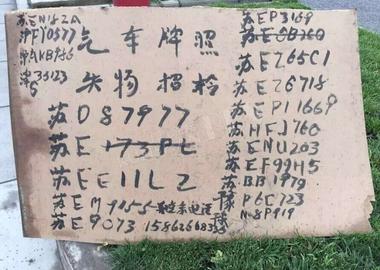 苏EN162A
沪FY0577
皖AKB986
汽车牌照
失物招检
苏D87977
苏E173PL
苏EE11LZ
苏EM9155
苏E9073 15862668
苏EP3169
苏E6B360
苏EZ65C1
苏EZ6718
苏EP11669
苏HFJ760
苏ENU203
苏EF99H5
苏BB1979
豫P6C723
N8P919